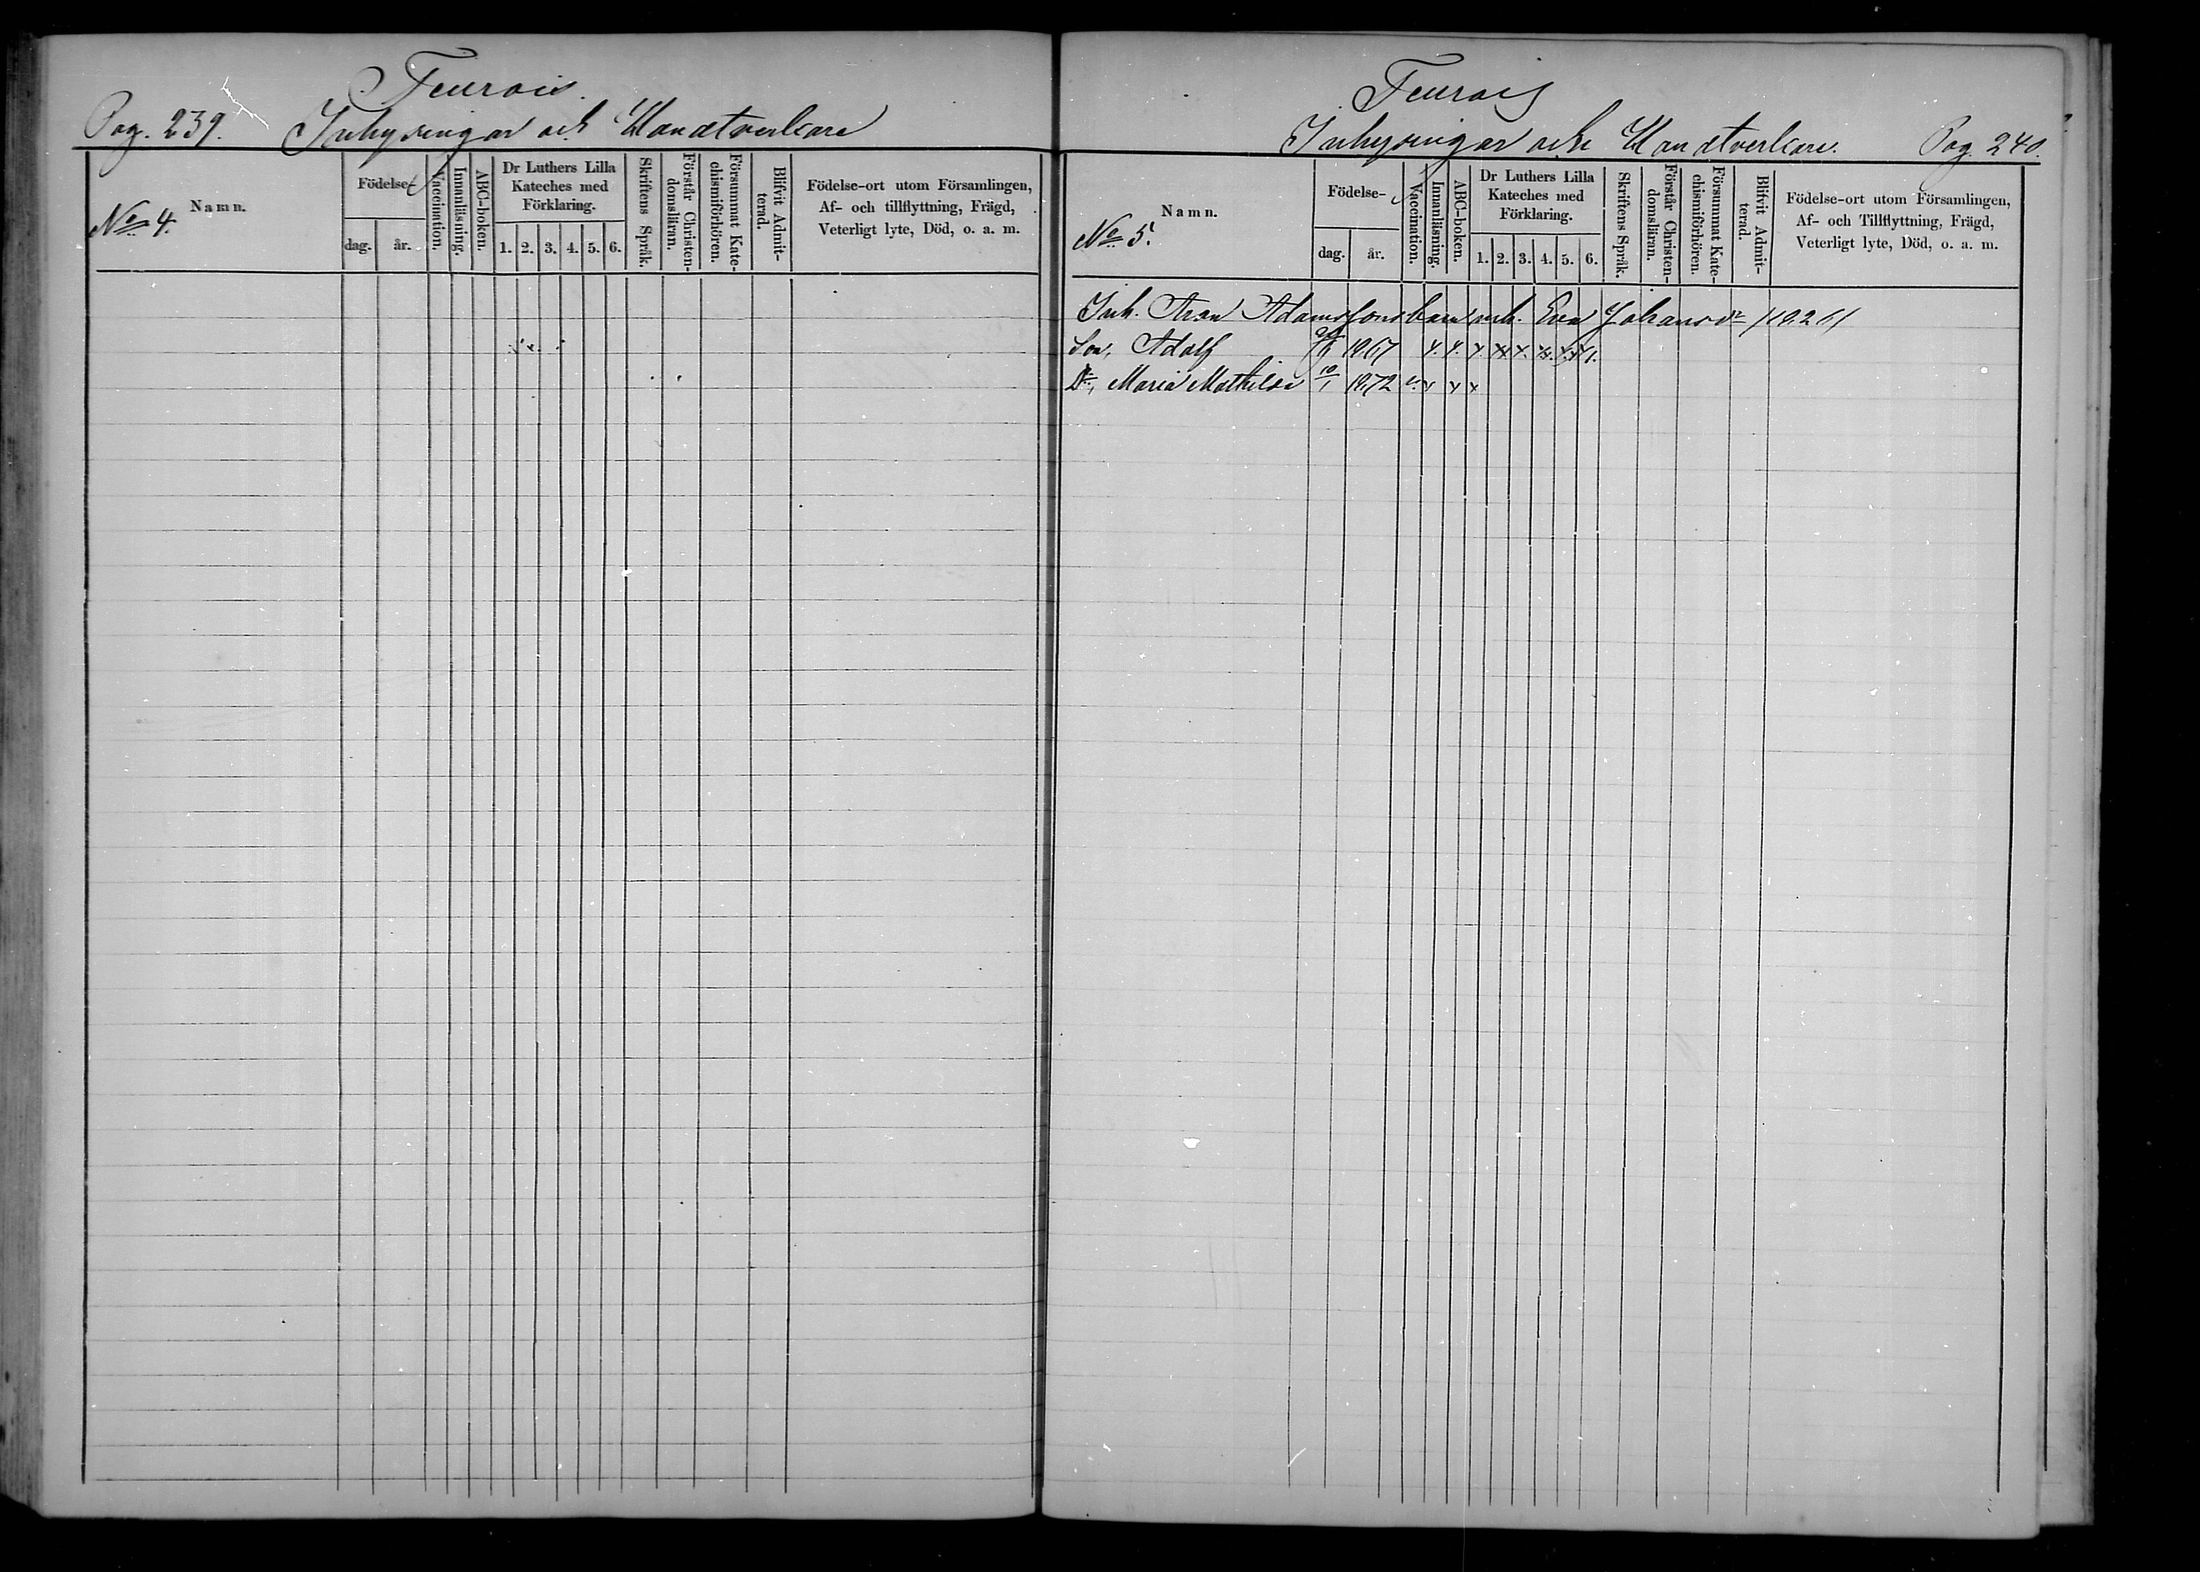 Pag. 239.
Teurois.
Inhysingar och Handtverkare
No 4.
Namn.
Födelse-
dag.
år.
Vaccination.
Innanläsning.
ABC-boken.
Dr Luthers Lilla
Kateches med
Förklaring.
1. 2. 3. 4. 5. 6.
Skriftens Språk.
Förstår Christen-
domsläran.
Försummat Kate-
chismiförhören.
Blifvit Admit-
terad.
Födelse-ort utom Församlingen,
Af- och tillflyttning, Frägd,
Veterligt lyte, Död, o. a. m.
Teurois
Inhysingar och Handtverkare.
Pag. 240.
No 5.
Namn.
Födelse-
dag.
år.
Vaccination.
Innanläsning.
ABC-boken.
Dr Luthers Lilla
Kateches med
Förklaring.
1. 2. 3. 4. 5. 6.
Skriftens Språk.
Förstår Christen-
domsläran.
Försummat Kate-
chismiförhören.
Blifvit Admit-
terad.
Födelse-ort utom Församlingen,
Af- och Tillflyttning, Frägd,
Veterligt lyte, Död, o. a. m.
Inh. Aron Adamssons barn och Eva Johansdr
Son, Adolf 1867
Dr, Maria Mathilda 10/1 1872